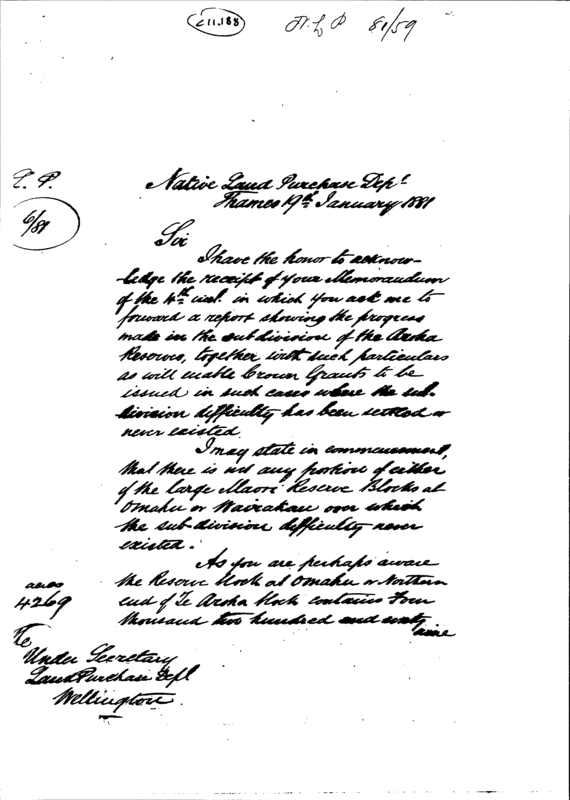 C11.188
N.L.P 81/59
L. P.
6/81
Native Land Purchase Dept
Thames 19th January 1881
Sir
I have the honor to acknow-
ledge the receipt of your Memorandum
of the 4th inst. in which you ask me to
forward a report showing the progress
made in the subdivision of the Aroha
Reserves, together with such particulars
as will enable Crown Grants to be
issued in such cases where the sub-
division difficulty has been settled or
never existed.
I may state in commencement,
that there is not any portion of either
of the large Maori Reserve Blocks at
Omahu or Wairakau over which
the sub-division difficulty never
existed.
As you are perhaps aware
the Reserve block at Omahu or Northern
end of Te Aroha block contains Four
thousand two hundred and sixty
nine
acres
4269
To
Under Secretary
Land Purchase Dept
Wellington.